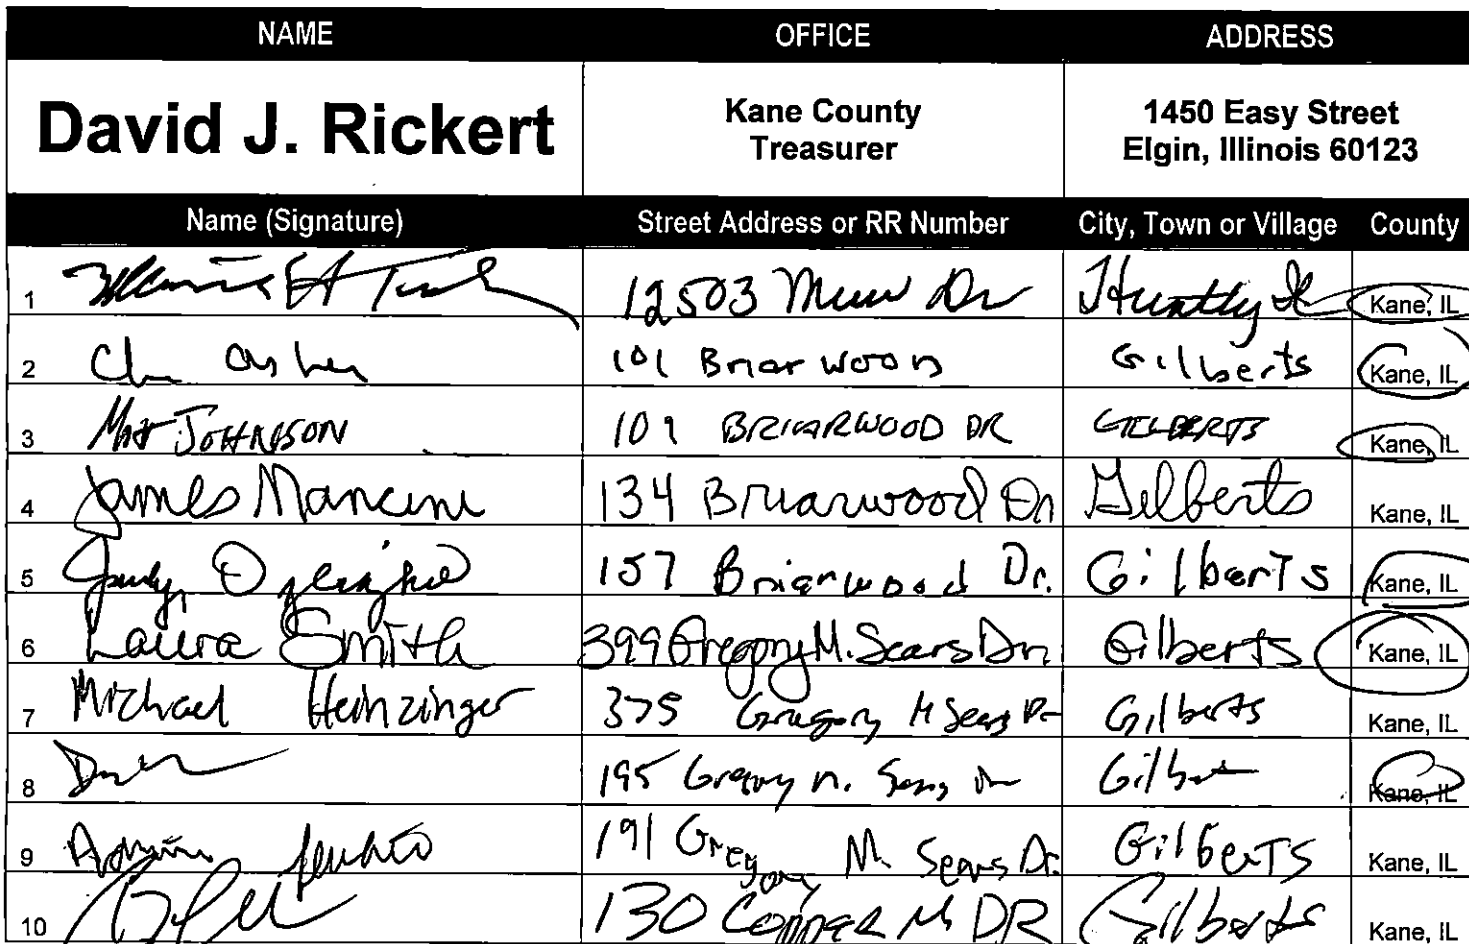 NAME OFFICE ADDRESS
David J. Rickert Kane County Treasurer 1450 Easy Street Elgin, Illinois 60123
Name (Signature) Street Address or RR Number City, Town or Village County
1 12503 Dr Huntley IL Kane, IL
2 101 Briarwood Gilberts Kane, IL
3 Mat JOHNSON 109 BRIARWOOD DR GILBERTS Kane, IL
4 James Mancini 134 Briarwood Dr Gilberts Kane, IL
5 Judy 157 Briarwood Dr. Gilberts Kane, IL
6 Laura Smith 399 Gregory M. Sears Dr. Gilberts Kane, IL
7 Michael Heinzinger 375 Gregory M Sears Dr Gilberts Kane, IL
8 195 Gregory M. Sears Dr Kane, IL
9 191 Gregory M. Sears Dr. Gilberts Kane, IL
10 130 COPPER DR Gilberts Kane, IL